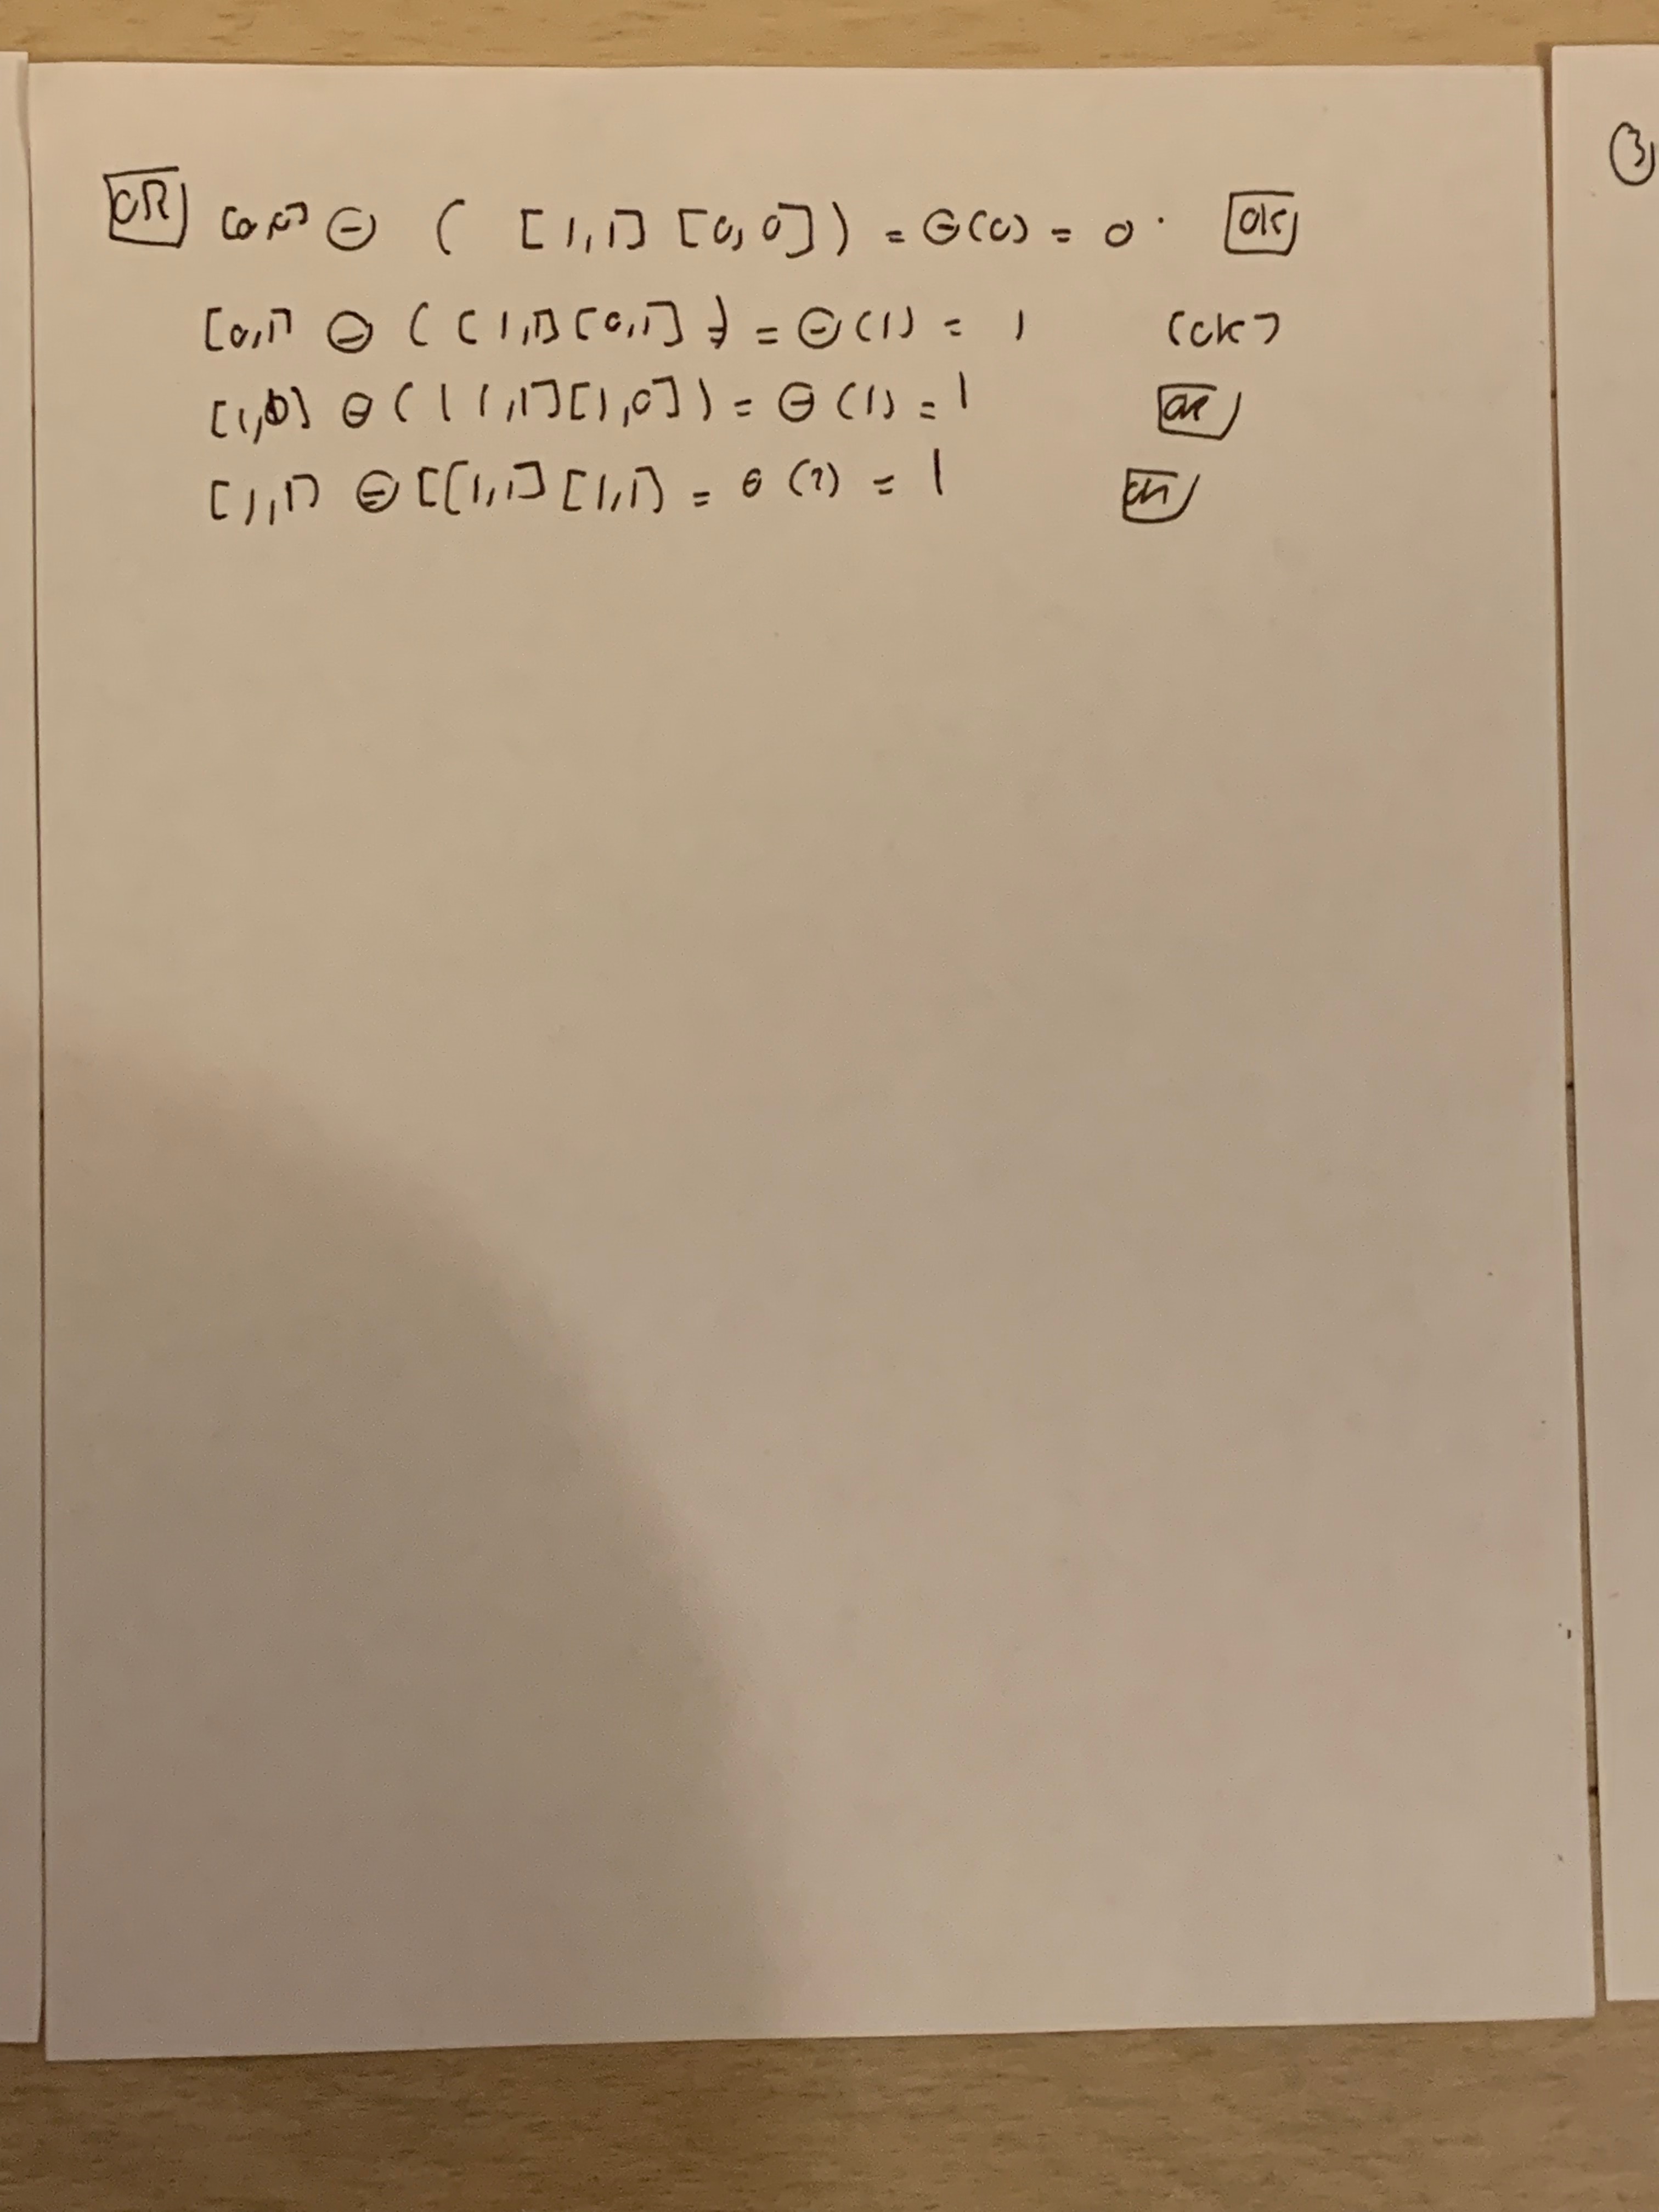 OR [0,0] Θ ( [1,1] [0,0] ) = Θ(0) = 0 . OK
[0,1] Θ ( [1,1] [0,1] ) = Θ(1) = 1 (OK)
[1,0] Θ ( [1,1] [1,0] ) = Θ(1) = 1 OK
[1,1] Θ [[1,1] [1,1] = Θ(2) = 1 OK
3